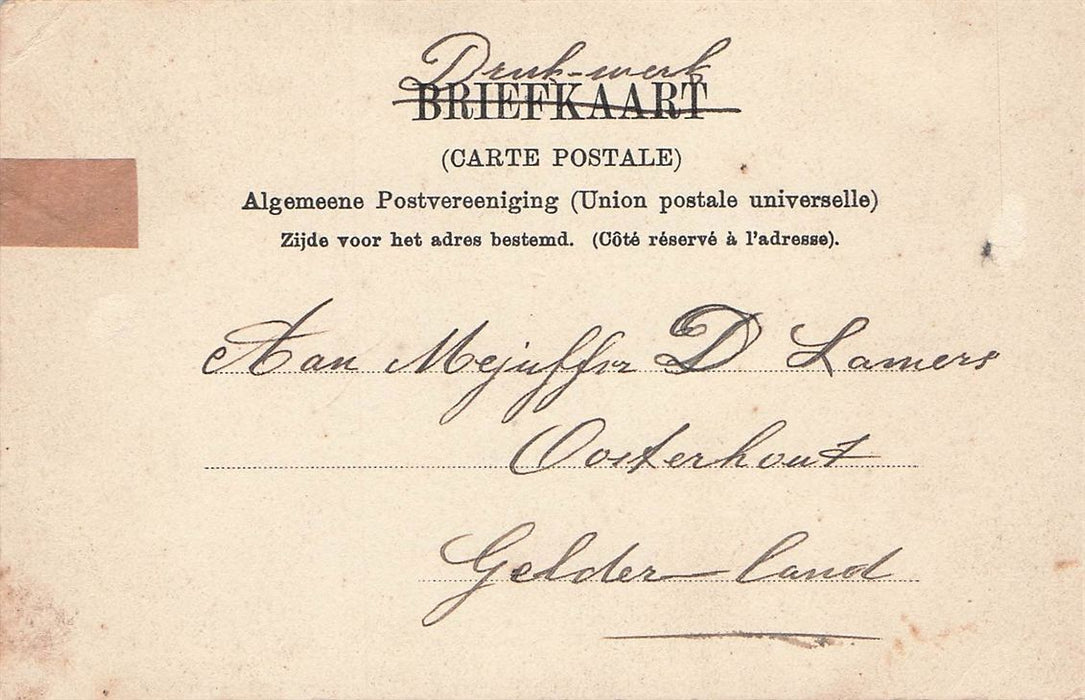 Druk-werk
BRIEFKAART
(CARTE POSTALE)
Algemeene Postvereeniging (Union postale universelle)
Zijde voor het adres bestemd. (Côté réservé à l'adresse).
Aan Mejuffr D Lamers
Oosterhout
Gelder-land